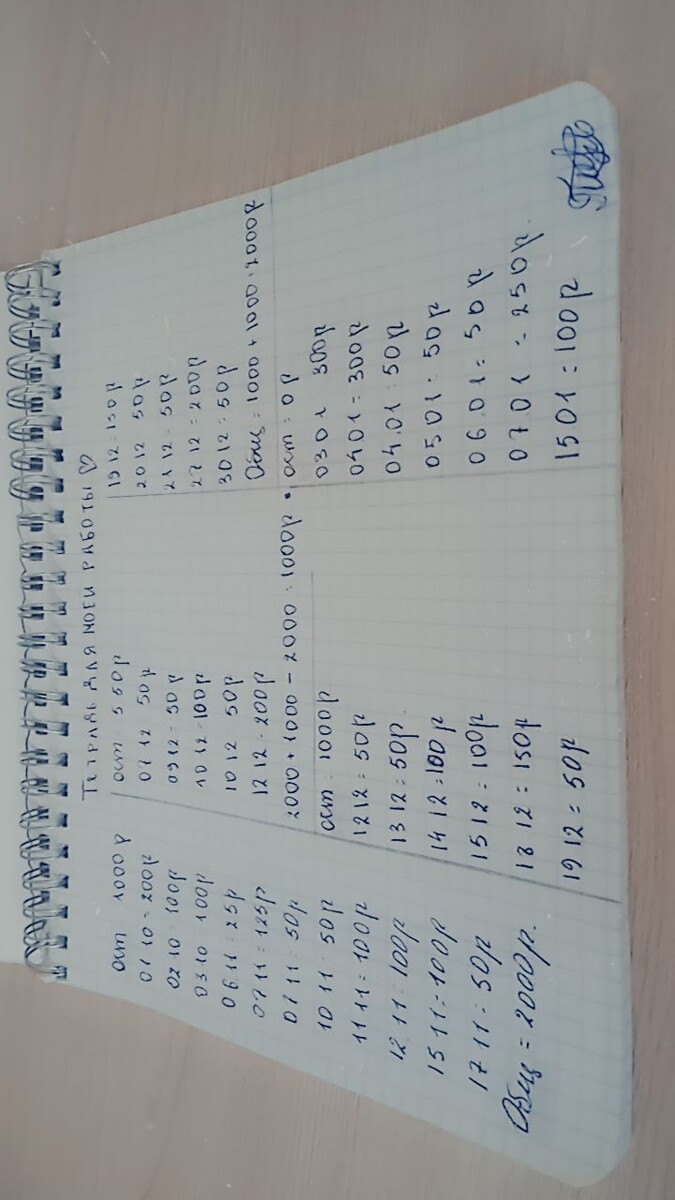 Тетрадь для моей работы ♡
ост 1000р
01 10 = 200р
02 10 = 100р
03 10 100р
06 11 = 25р
07 11 = 125р
07 11 = 50р
10 11 = 50р
11 11 = 100р
12 11 = 100р
15 11 = 100р
17 11 = 50р
Общ = 2000р.
ост = 550р
07 12 50р
09 12 = 50р
10 12 = 100р
10 12 50р
12 12 = 200р
2000 + 1000 - 2000 = 1000р.
ост = 1000р
12 12 = 50р
13 12 = 50р.
14 12 = 100р
15 12 = 100р
18 12 = 150р
19 12 = 50р
19 12 = 150р
20 12 50р
21 12 = 50р
27 12 = 200р
30 12 = 50р
Общ = 1000 + 1000 = 2000р
ост = 0р
03 01 300р
04 01 = 300р
04.01 = 50р
05 01 = 50р
06.01 = 50р
07 01 = 250р.
15 01 = 100р